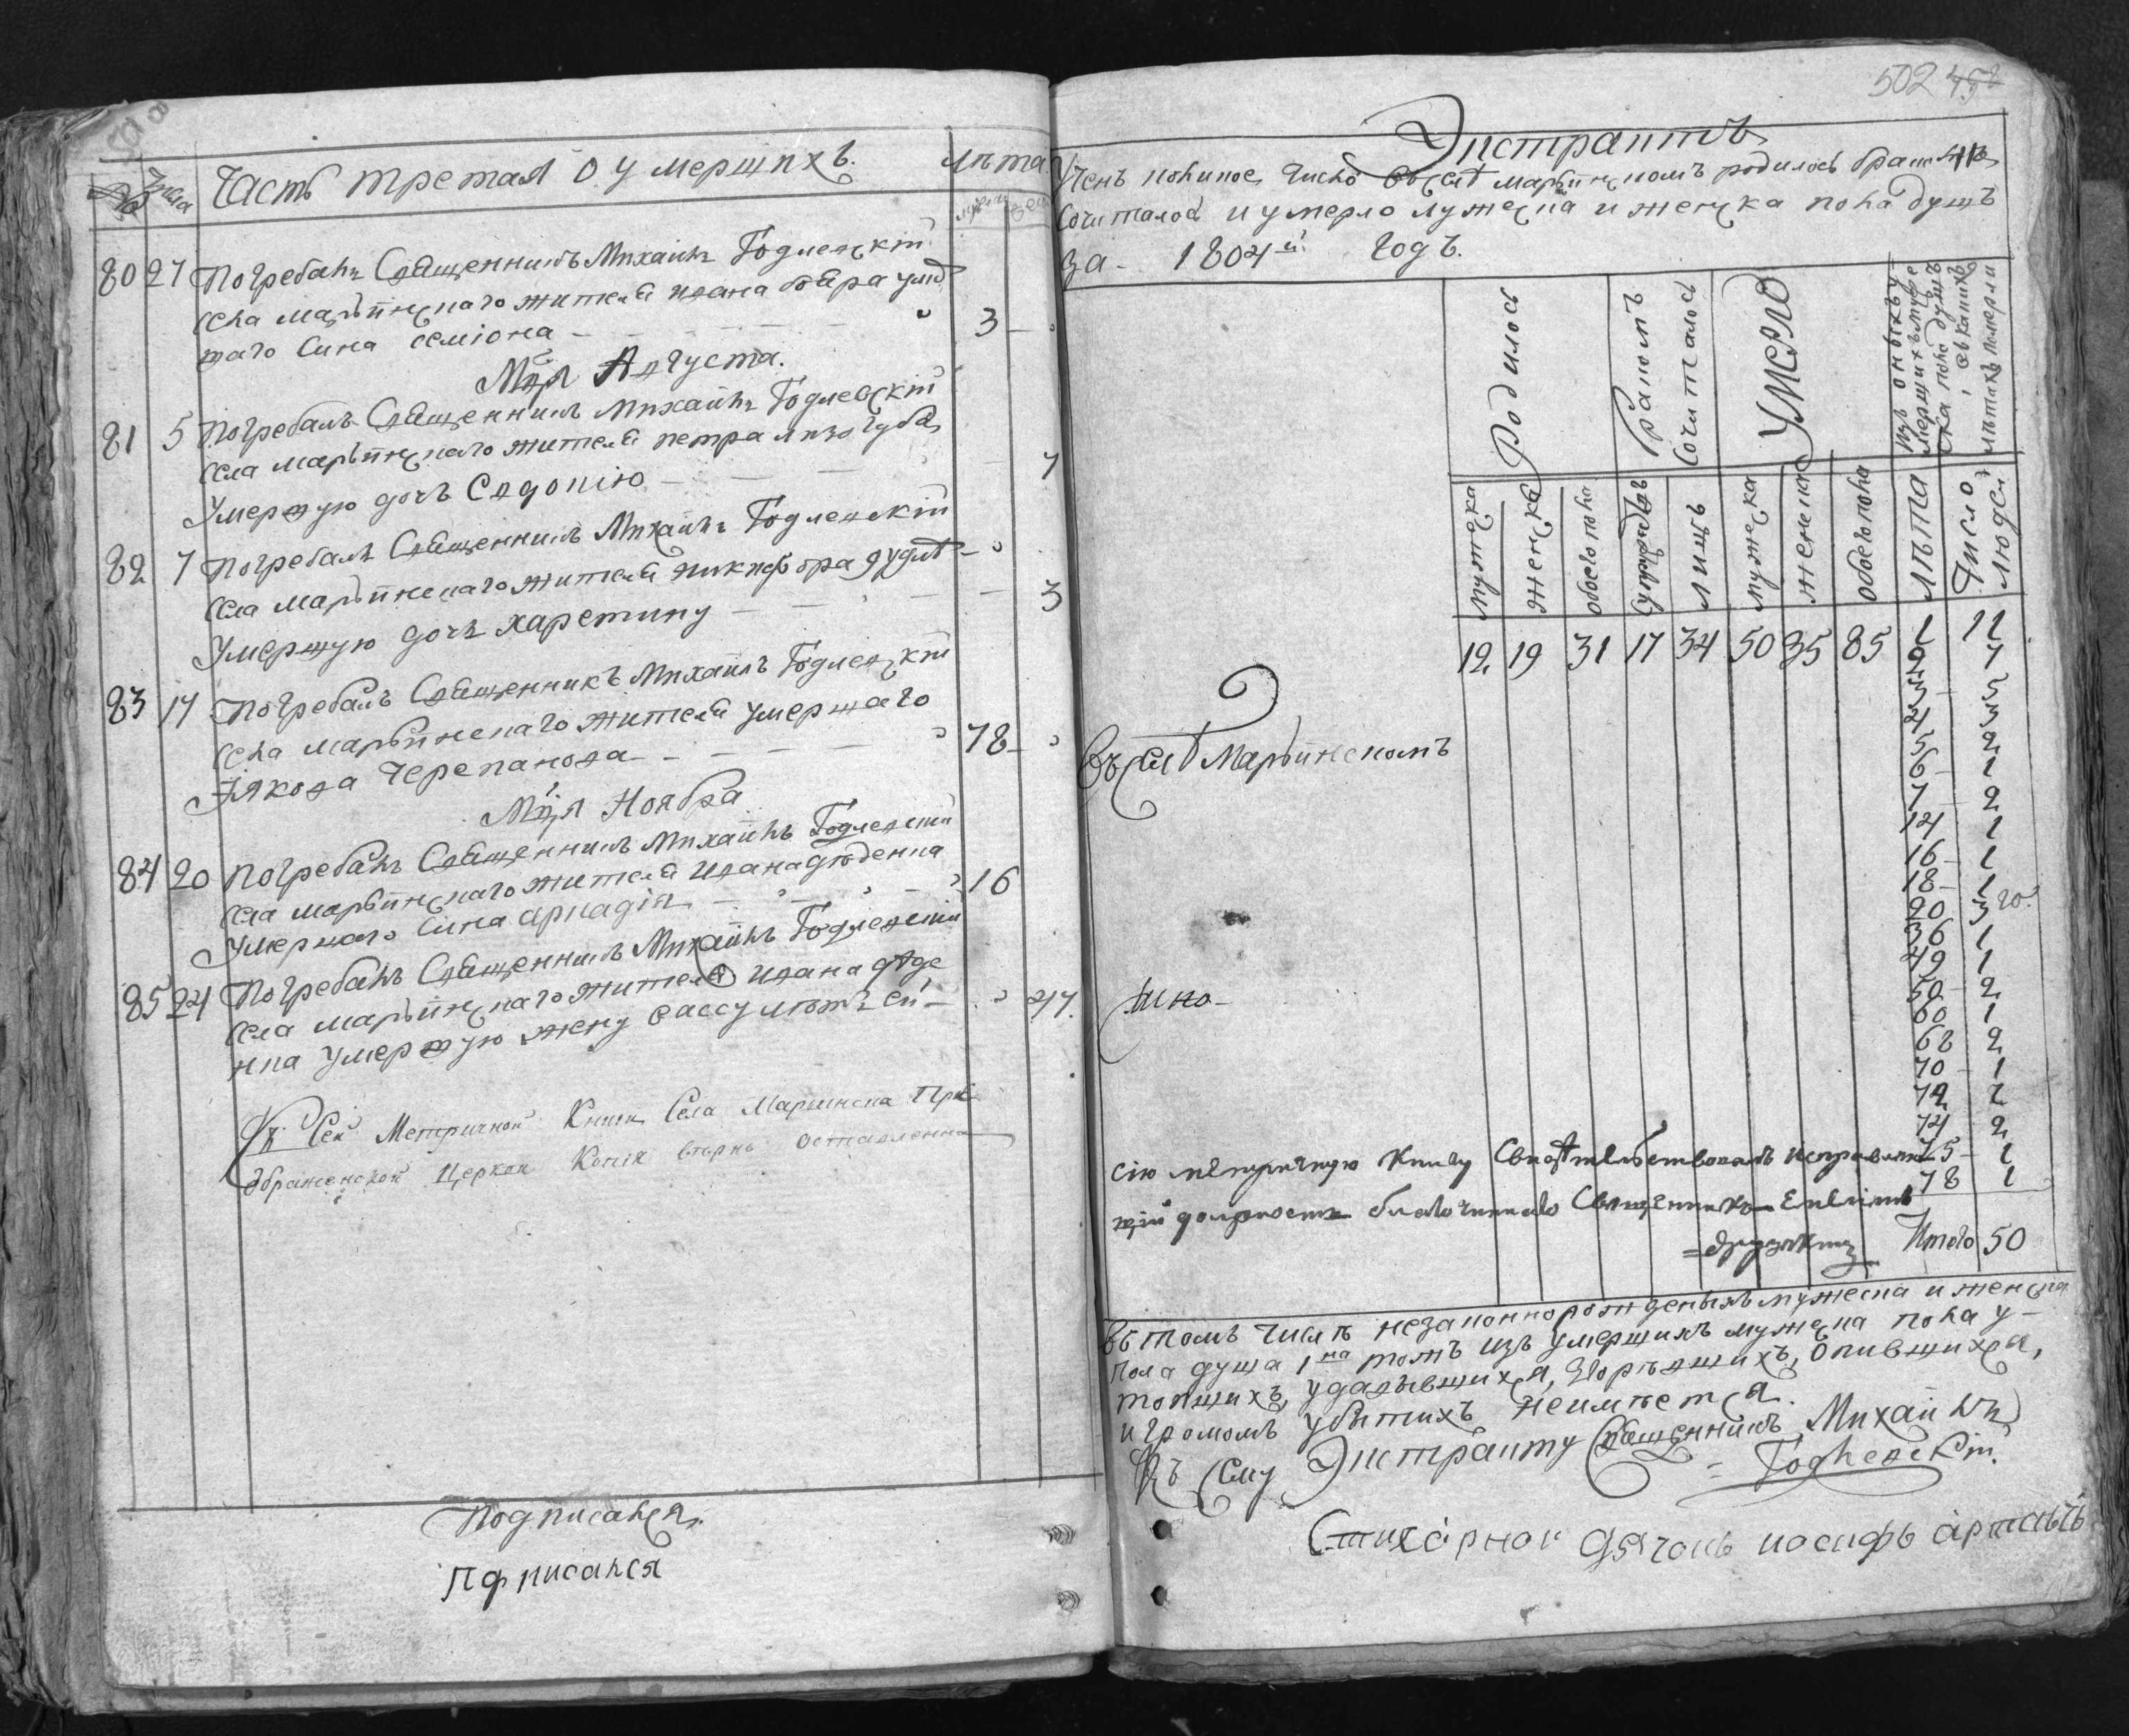 Числа
Часть третая о умершихъ.
Лѣта
80 27 Погребалъ Священникъ Михаилъ Годлевскій
села марьинскаго жителя ивана умер
шаго сина семіона 3
Мця Августа.
81 5 Погребалъ Священникъ Михаилъ Годлевскій
села марьинскаго жителя петра лизогуба
Умершую дочь Євдокію 7
82 7 Погребалъ Священникъ Михаилъ Годлевскій
села марьинскаго жителя никифора
Умершую дочь харетину 3
83 17 Погребалъ Священникъ Михаилъ Годлевскій
села марьинскаго жителя умершаго
Іякова Черепанова 78
Мця Ноября
84 20 Погребалъ Священникъ Михаилъ Годлевскій
села марьинскаго жителя ивана
Умершаго сина аркадія 16
85 24 Погребалъ Священникъ Михаилъ Годлевскій
села марьинскаго жителя ивана
нка умершую жену вассу лѣтъ ей 47.
Къ Сей Метричной Книги Села Марьинска Прео
браженской Церкви Копія вѣрна оставленна
Подписался
Пдписался
502
Экстрактъ
Учень коликое число въ селѣ марьинскомъ родилось бракомъ
сочиталось и умерло мужеска и женска пола душъ
за 1804й годъ.
Родилось
Бракомъ Сочиталось
Умерло
Изъ онихъ у
мершихъ муже
ска пола душъ
въ какихъ
лѣтахъ померли
мужеска
женска
обоего пола
лицъ
мужеска
женска
обоего пола
лѣта
Число людей
12 19 31 17 34 50 35 85 1 11
2 7
3 5
4 3
5 2
6 1
7 2
14 1
16 1
18 1
20 3
36 1
49 1
50 2
60 1
68 2
70 1
72 1
74 2
75 1
78 1
Итого 50
Въ селѣ Марьинскомъ
сію метричную книгу Свидѣтельствовалъ исправляю
щій должность благочиннаго Священникъ
въ томъ числѣ незаконнорожденыхъ мужеска и женска
пола душа 1на тожъ изъ умершихъ мужска пола у
топшихъ, удавывшихся, згорѣвшихъ, опившихся,
и громомъ убитихъ неимѣется.
Къ сему Экстракту Священникъ Михаилъ
Годлевскій.
Стихарной дячокъ иосифъ